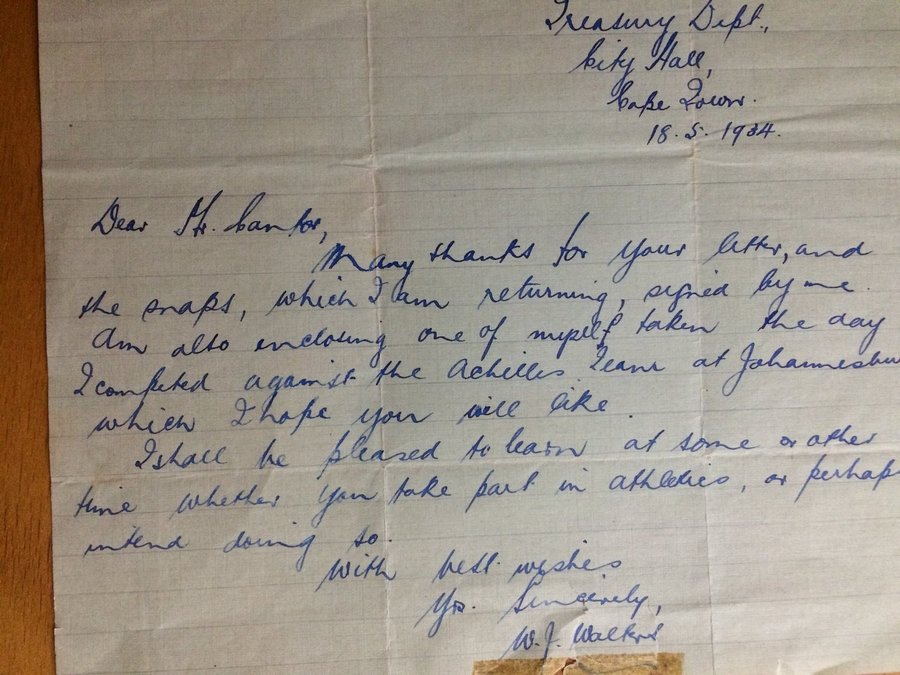 Treasury Dept.,
City Hall,
Cape Town.
18.5.1934.
Dear Mr. Cantor,
Many thanks for your letter, and
the snaps, which I am returning, signed by me.
Am also enclosing one of myself taken the day
I competed against the Achilles Team at Johannesbu
which I hope you will like.
I shall be pleased to learn at some or other
time whether you take part in athletics, or perhaps
intend doing so.
With best wishes
Yrs. Sincerely,
W.J. Walters